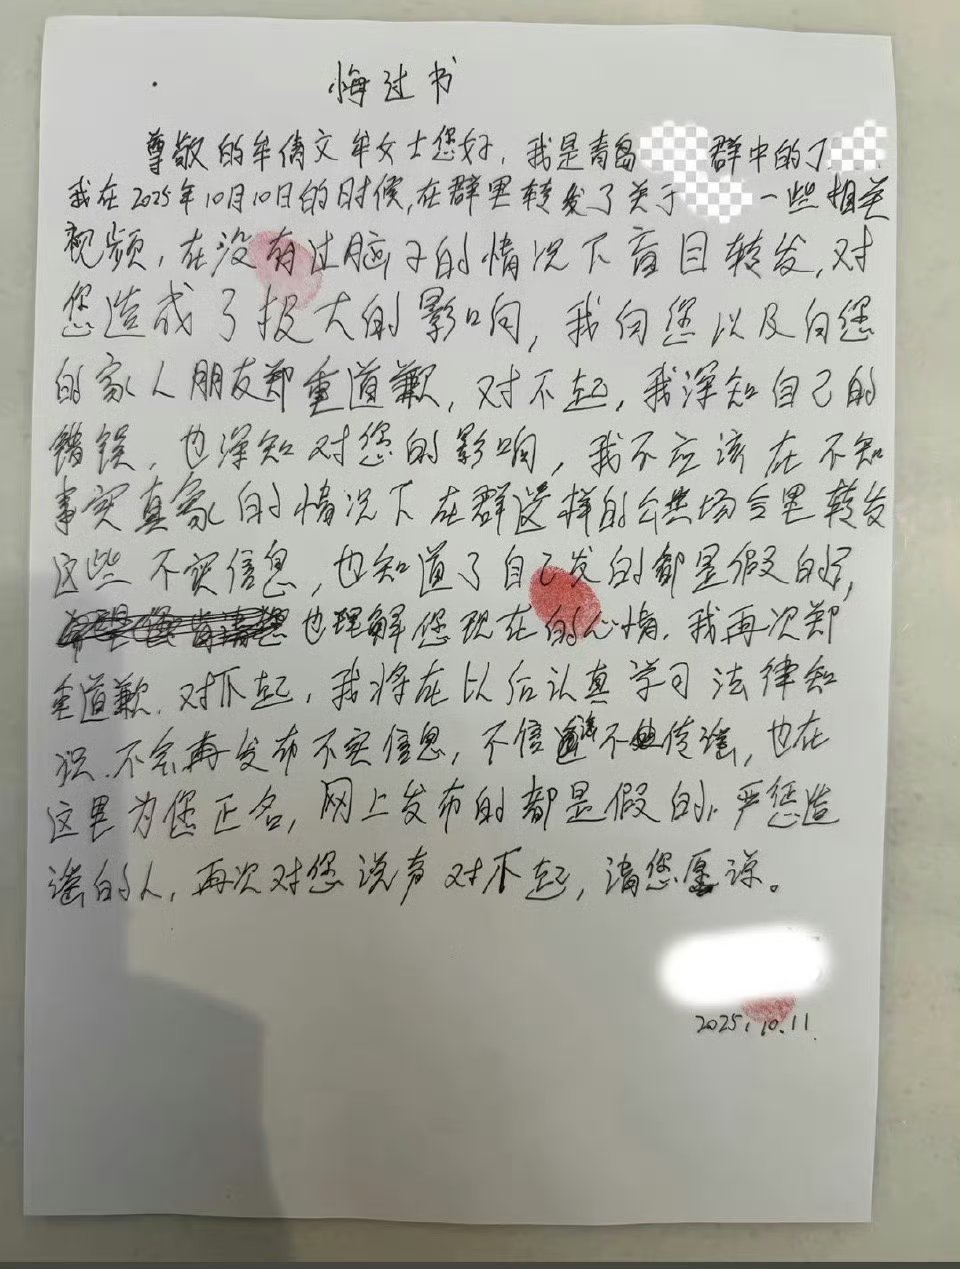 悔过书
尊敬的牟倩文牟女士您好，我是青岛 群中的丁
我在2025年10月10日的时候，在群里转发了关于 一些相关
视频，在没有过脑子的情况下盲目转发，对
您造成了极大的影响，我向您以及向您
的家人朋友郑重道歉，对不起，我深知自己的
错误，也深知对您的影响，我不应该在不知
事实真象的情况下在群这样的公共场合里转发
这些不实信息，也知道了自己发的都是假的，
也理解您现在的心情，我再次郑
重道歉，对不起，我将在以后认真学习法律知
识，不会再发布不实信息，不信谣不传谣，也在
这里为您正名，网上发布的都是假的，严惩造
谣的人，再次对您说声对不起，请您原谅。
2025.10.11